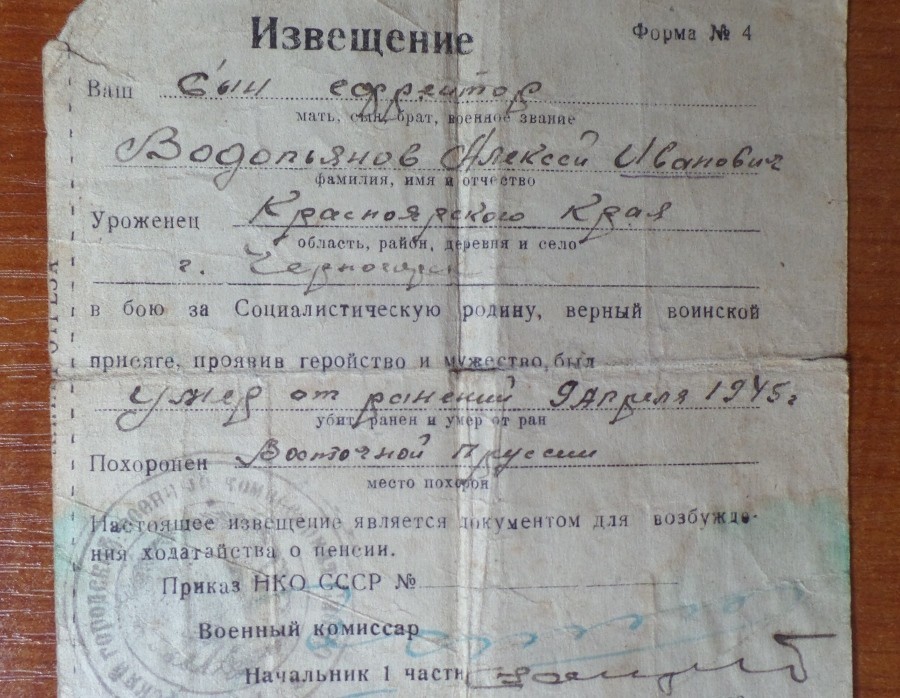 Извещение
Форма № 4
Ваш сын ефрейтор
мать, сын, брат, военное звание
Водопьянов Алексей Иванович
фамилия, имя и отчество
Уроженец Красноярского Края
область, район, деревня и село
г. Черногорск
в бою за Социалистическую родину, верный воинской
присяге, проявив геройство и мужество, был
умер от ранений 9 Апреля 1945 г
убит, ранен и умер от ран
Похоронен Восточной Пруссии
место похорон
Настоящее извещение является документом для возбужде-
ния ходатайства о пенсии.
Приказ НКО СССР №
Военный комиссар
Начальник 1 части